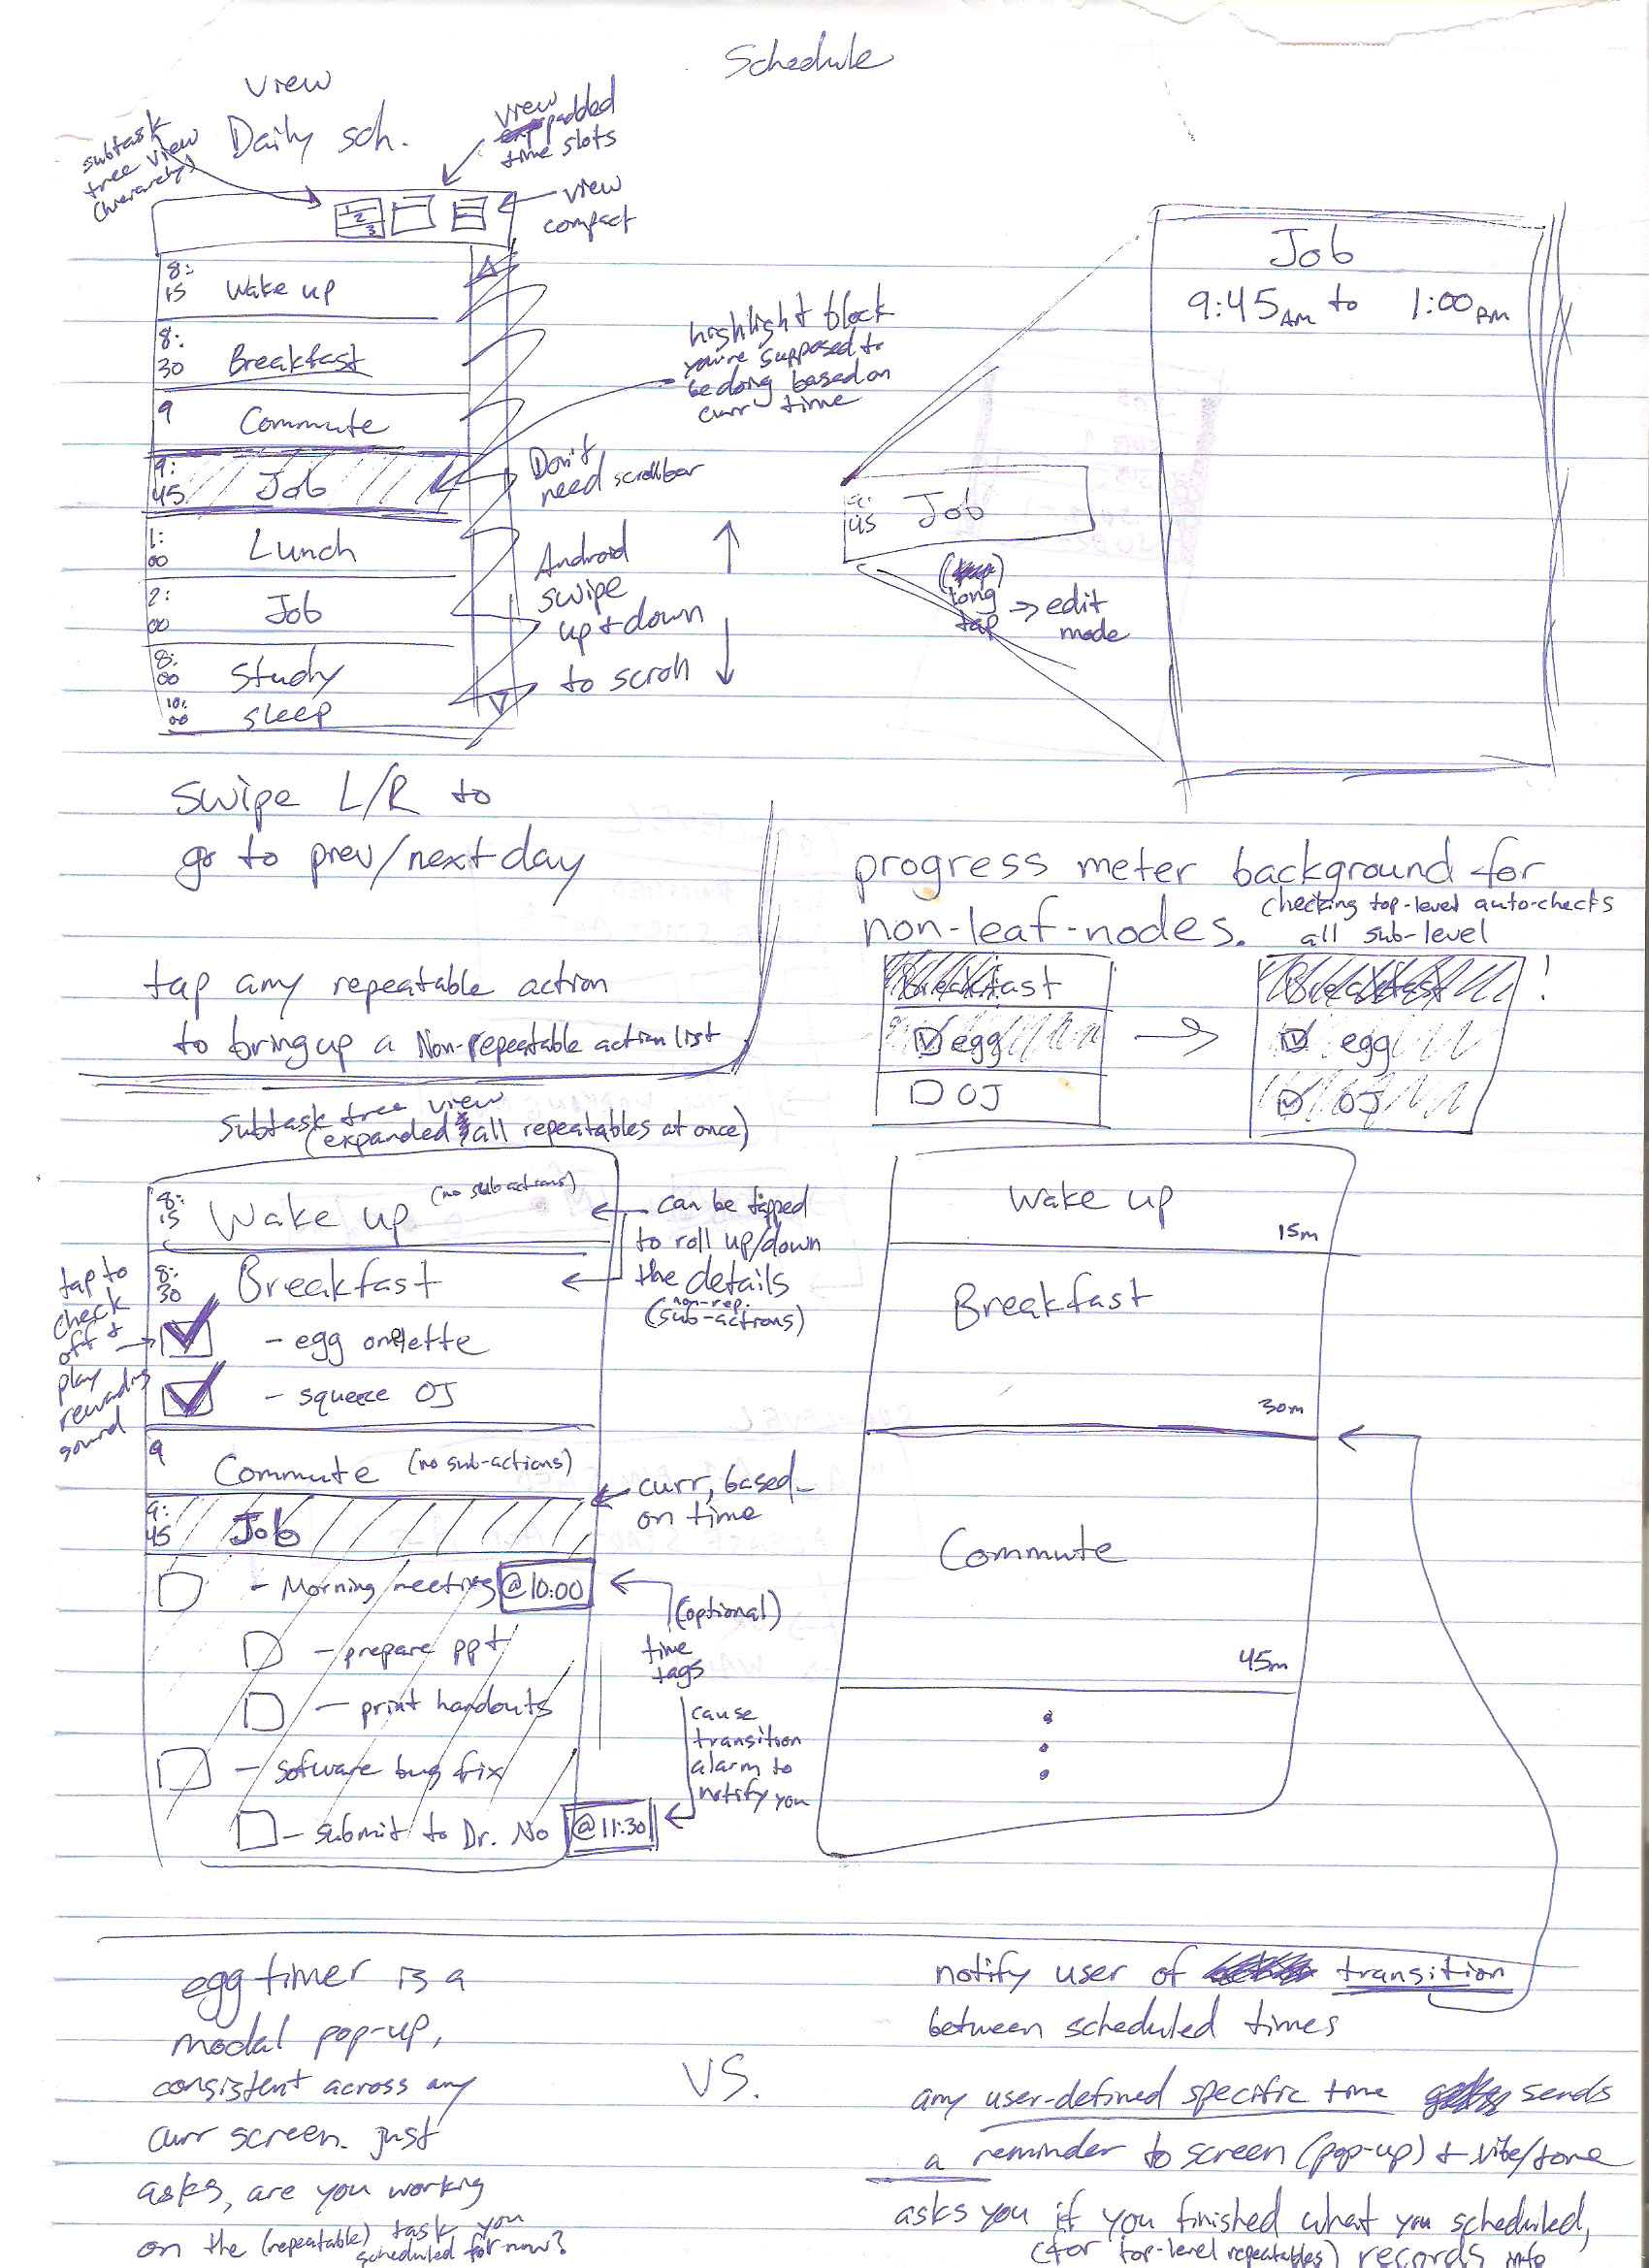 Schedule
view
Daily sch.
subtask
tree view
(hierarchy)
view
padded
time slots
view
compact
1
2
3
8:
15 Wake up
8:
30 Breakfast
9 Commute
9:
45 Job
1:
00 Lunch
2:
00 Job
8:
00 Study
10:
00 sleep
highlight block
you're supposed to
be doing based on
curr time
Don't
need scrollbar
Android
swipe
up + down
to scroll
Job
9:45 AM to 1:00 PM
9:
45 Job
long
tap → edit
mode
swipe L/R to
go to prev/next day
tap any repeatable action
to bring up a Non-repeatable action list
progress meter background for
non-leaf-nodes.
checking top-level auto-checks
all sub-level
Breakfast
egg
OJ
→
Breakfast !
egg
OJ
subtask tree view
(expanded & all repeatables at once)
8:
15 Wake up (no sub actions)
8:
30 Breakfast
- egg omelette
- squeeze OJ
9 Commute (no sub-actions)
9:
45 Job
- Morning meeting @10:00
- prepare ppt
- print handouts
- sofware bug fix
- submit to Dr. No @11:30
tap to
check
off +
play
rewarding
sound
can be tapped
to roll up/down
the details
non-rep.
(sub-actions)
curr, based
on time
(optional)
time
tags
cause
transition
alarm to
notify you
Wake up
15m
Breakfast
30m
Commute
45m
egg timer is a
modal pop-up,
consistent across any
curr screen. just
asks, are you working
on the (repeatable) task you
scheduled for now?
VS.
notify user of transition
between scheduled times
any user-defined specific time sends
a reminder to screen (pop-up) + vibe/tone
asks you if you finished what you scheduled,
(for top-level repeatables) records info